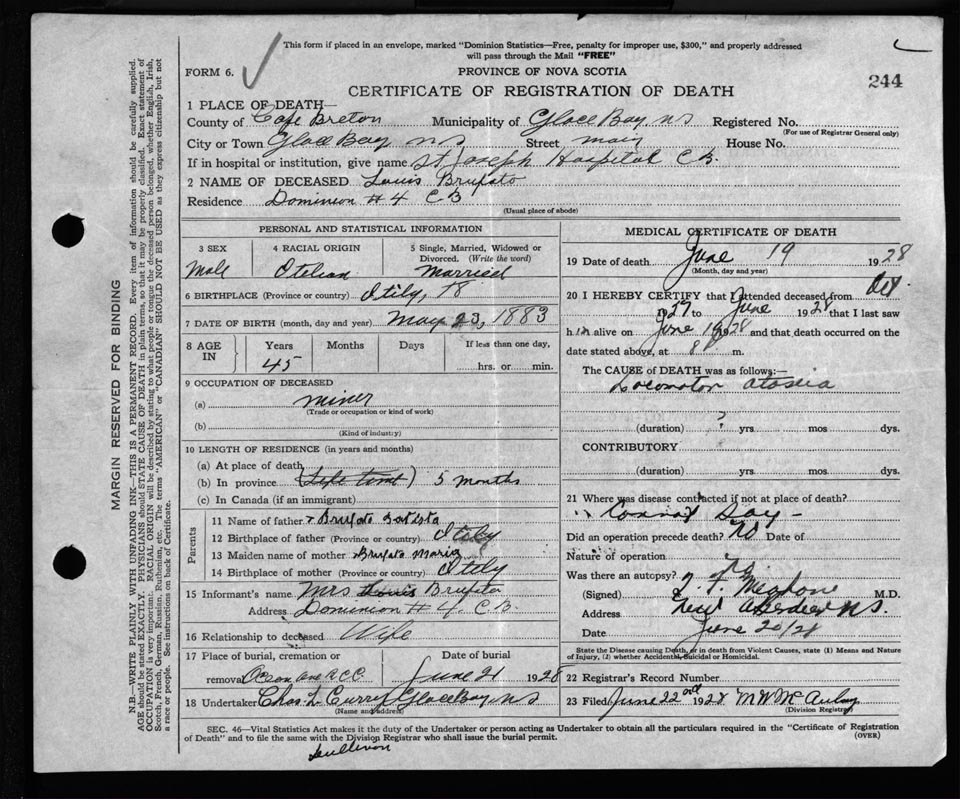 This form if placed in an envelope, marked "Dominion Statistics—Free, penalty for improper use, $300," and properly addressed
will pass through the Mail "FREE"
FORM 6.
PROVINCE OF NOVA SCOTIA
244
CERTIFICATE OF REGISTRATION OF DEATH
1 PLACE OF DEATH—
County of Cape Breton Municipality of Glace Bay, NS Registered No.
(For use of Registrar General only)
City or Town Glace Bay NS Street Main House No.
If in hospital or institution, give name St Joseph Hospital C.B.
2 NAME OF DECEASED Louis Brufato
Residence Dominion #4 C B
(Usual place of abode)
PERSONAL AND STATISTICAL INFORMATION
3 SEX 4 RACIAL ORIGIN 5 Single, Married, Widowed or
Divorced. (Write the word)
Male Italian Married
6 BIRTHPLACE (Province or country) Itily,
7 DATE OF BIRTH (month, day and year) May 23, 1883
8 AGE IN Years Months Days If less than one day,
45 hrs. or min.
9 OCCUPATION OF DECEASED
(a) miner
(Trade or occupation or kind of work)
(b)
(Kind of industry)
10 LENGTH OF RESIDENCE (in years and months)
(a) At place of death
(b) In province (Life time) 5 months
(c) In Canada (if an immigrant)
Parents
11 Name of father Brufato Batista
12 Birthplace of father (Province or country) Itily
13 Maiden name of mother Brufato Maria
14 Birthplace of mother (Province or country) Itily
15 Informant's name Mrs Louis Brufato
Address Dominion #4, C.B.
16 Relationship to deceased Wife
17 Place of burial, cremation or Date of burial
removal Ocean Ave R.C.C. June 21 1928
18 Undertaker Chas. L. Curry, Glace Bay NS
(Name and address)
MEDICAL CERTIFICATE OF DEATH
19 Date of death June 19 1928
(Month, day and year)
20 I HEREBY CERTIFY that I attended deceased from Oct
1927 to June 1928 that I last saw
him alive on June 19 1928 and that death occurred on the
date stated above, at 8 P m.
The CAUSE of DEATH was as follows:—
Locomotor ataxia
(duration) ? yrs mos dys.
CONTRIBUTORY
(duration) yrs. mos dys.
21 Where was disease contracted if not at place of death?
Did an operation precede death? No Date of
Nature of operation
Was there an autopsy? no
(Signed) M.D.
Address New Aberdeen N.S.
Date June 20/28
State the Disease causing Death, or in death from Violent Causes, state (1) Means and Nature
of Injury, (2) whether Accidental, Suicidal or Homicidal.
22 Registrar's Record Number
23 Filed June 22nd 1928 M W McAulay
(Division Registrar)
SEC. 46—Vital Statistics Act makes it the duty of the Undertaker or person acting as Undertaker to obtain all the particulars required in the "Certificate of Registration
of Death" and to file the same with the Division Registrar who shall issue the burial permit.
(OVER)
Sullivan
MARGIN RESERVED FOR BINDING
N.B.—WRITE PLAINLY WITH UNFADING INK—THIS IS A PERMANENT RECORD. Every item of information should be carefully supplied.
AGE should be stated EXACTLY. PHYSICIANS should STATE CAUSE OF DEATH in plain terms, so that it may be properly classified. Exact statement of
OCCUPATION is very important. RACIAL ORIGIN will be described by stating to what people or tongue the deceased person belonged, whether English, Irish,
Scotch, French, German, Russian, Ruthenian, etc. The terms "AMERICAN" or "CANADIAN" SHOULD NOT BE USED as they express citizenship but not
a race or people. See instructions on back of Certificate.